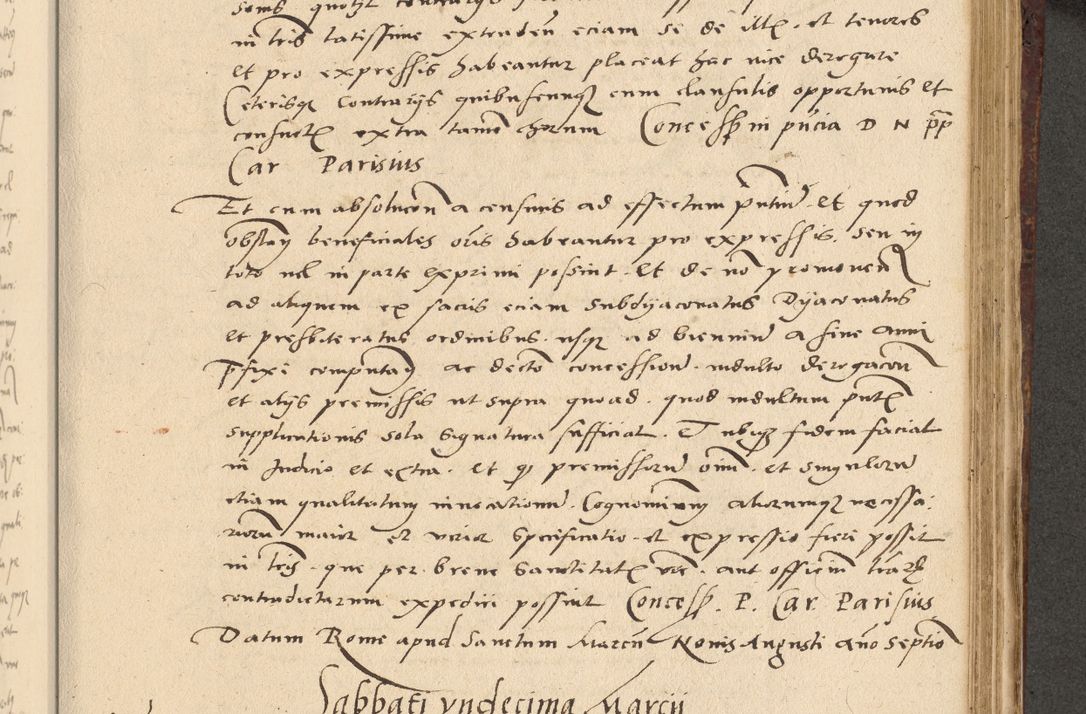 in tris latissime extraden eciam se de illis et tenores
et pro expressis habeantur placeat hac vice derogare
Ceterisque contrarijs quibuscunque cum clausulis opportunis et
consuetis extra tamen Concessum in pñcia D N pp
Car Parisius
Et cum absolucon a censuris ad effectum pntium et quod
obstan beneficiales oris habeantur pro expressis seu in
toto vel in parte exprimi possint Et de non promoven
ad aliquem ex sacris eciam subdyaconatus Dyaconatus
et presbiteratus ordinibus usque ad biennium a fine anni
prefixi computan ac decto concessione indulto derogacon
et alijs premissis ut supra quoad quod indultum pntis
supplicationis sola signatura sufficiat Et ubique fidem faciat
in Judicio et extra et quod premissorum oim et singulorum
etiam qualitatum invocationum Cognominum aliorumque necessa:
riorum maior et verior specificatio et expressio fieri possit
in tris que per breve Sanctitatis vre aut officium trarum
contradictarum expediri possint Concess. P. Car Parisius
Datum Rome apud Sanctum Marcum Nonis Augusti año septio
Sabbati undecima Marcii